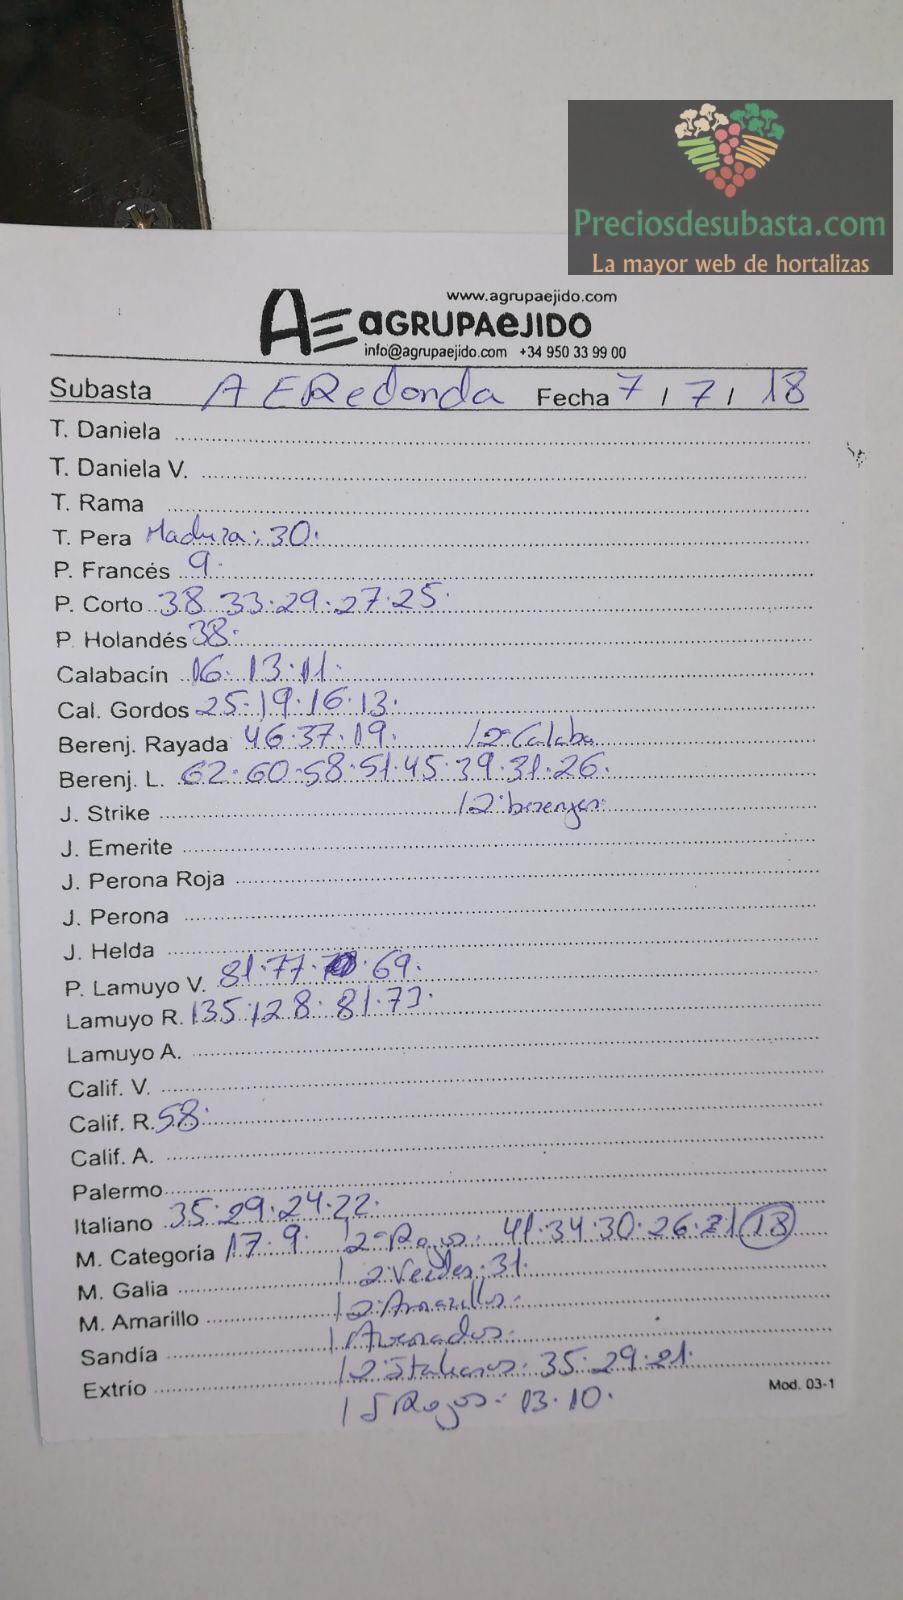 Preciosdesubasta.com
La mayor web de hortalizas
www.agrupaejido.com
AE aGRUPAeJIDO
info@agrupaejido.com +34 950 33 99 00
Subasta A E Redonda Fecha 7 / 7 / 18
T. Daniela
T. Daniela V.
T. Rama
T. Pera Madura: 30.
P. Francés 9.
P. Corto 38 33.29.27.25.
P. Holandés 38.
Calabacín 16. 13.11.
Cal. Gordos 25.19.16.13.
Berenj. Rayada 46.37.19. / 2ª Calaba
Berenj. L. 62.60.58.51.45.39.31.26.
J. Strike / 2ª berenjer.
J. Emerite
J. Perona Roja
J. Perona
J. Helda
P. Lamuyo V. 81.77. .69.
Lamuyo R. 135.128. 81.73.
Lamuyo A.
Calif. V.
Calif. R. 58.
Calif. A.
Palermo
Italiano 35.29.24.22.
M. Categoría 17.9. / 2ª Rojos. 41.34.30.26.21 18
M. Galia / 2ª Verdes. 31.
M. Amarillo / 2ª Amarillos.
Sandía / Asurados.
Extrío / 2ª Italianos. 35.29.21.
/ 5 Rojos. 13.10.
Mod. 03-1